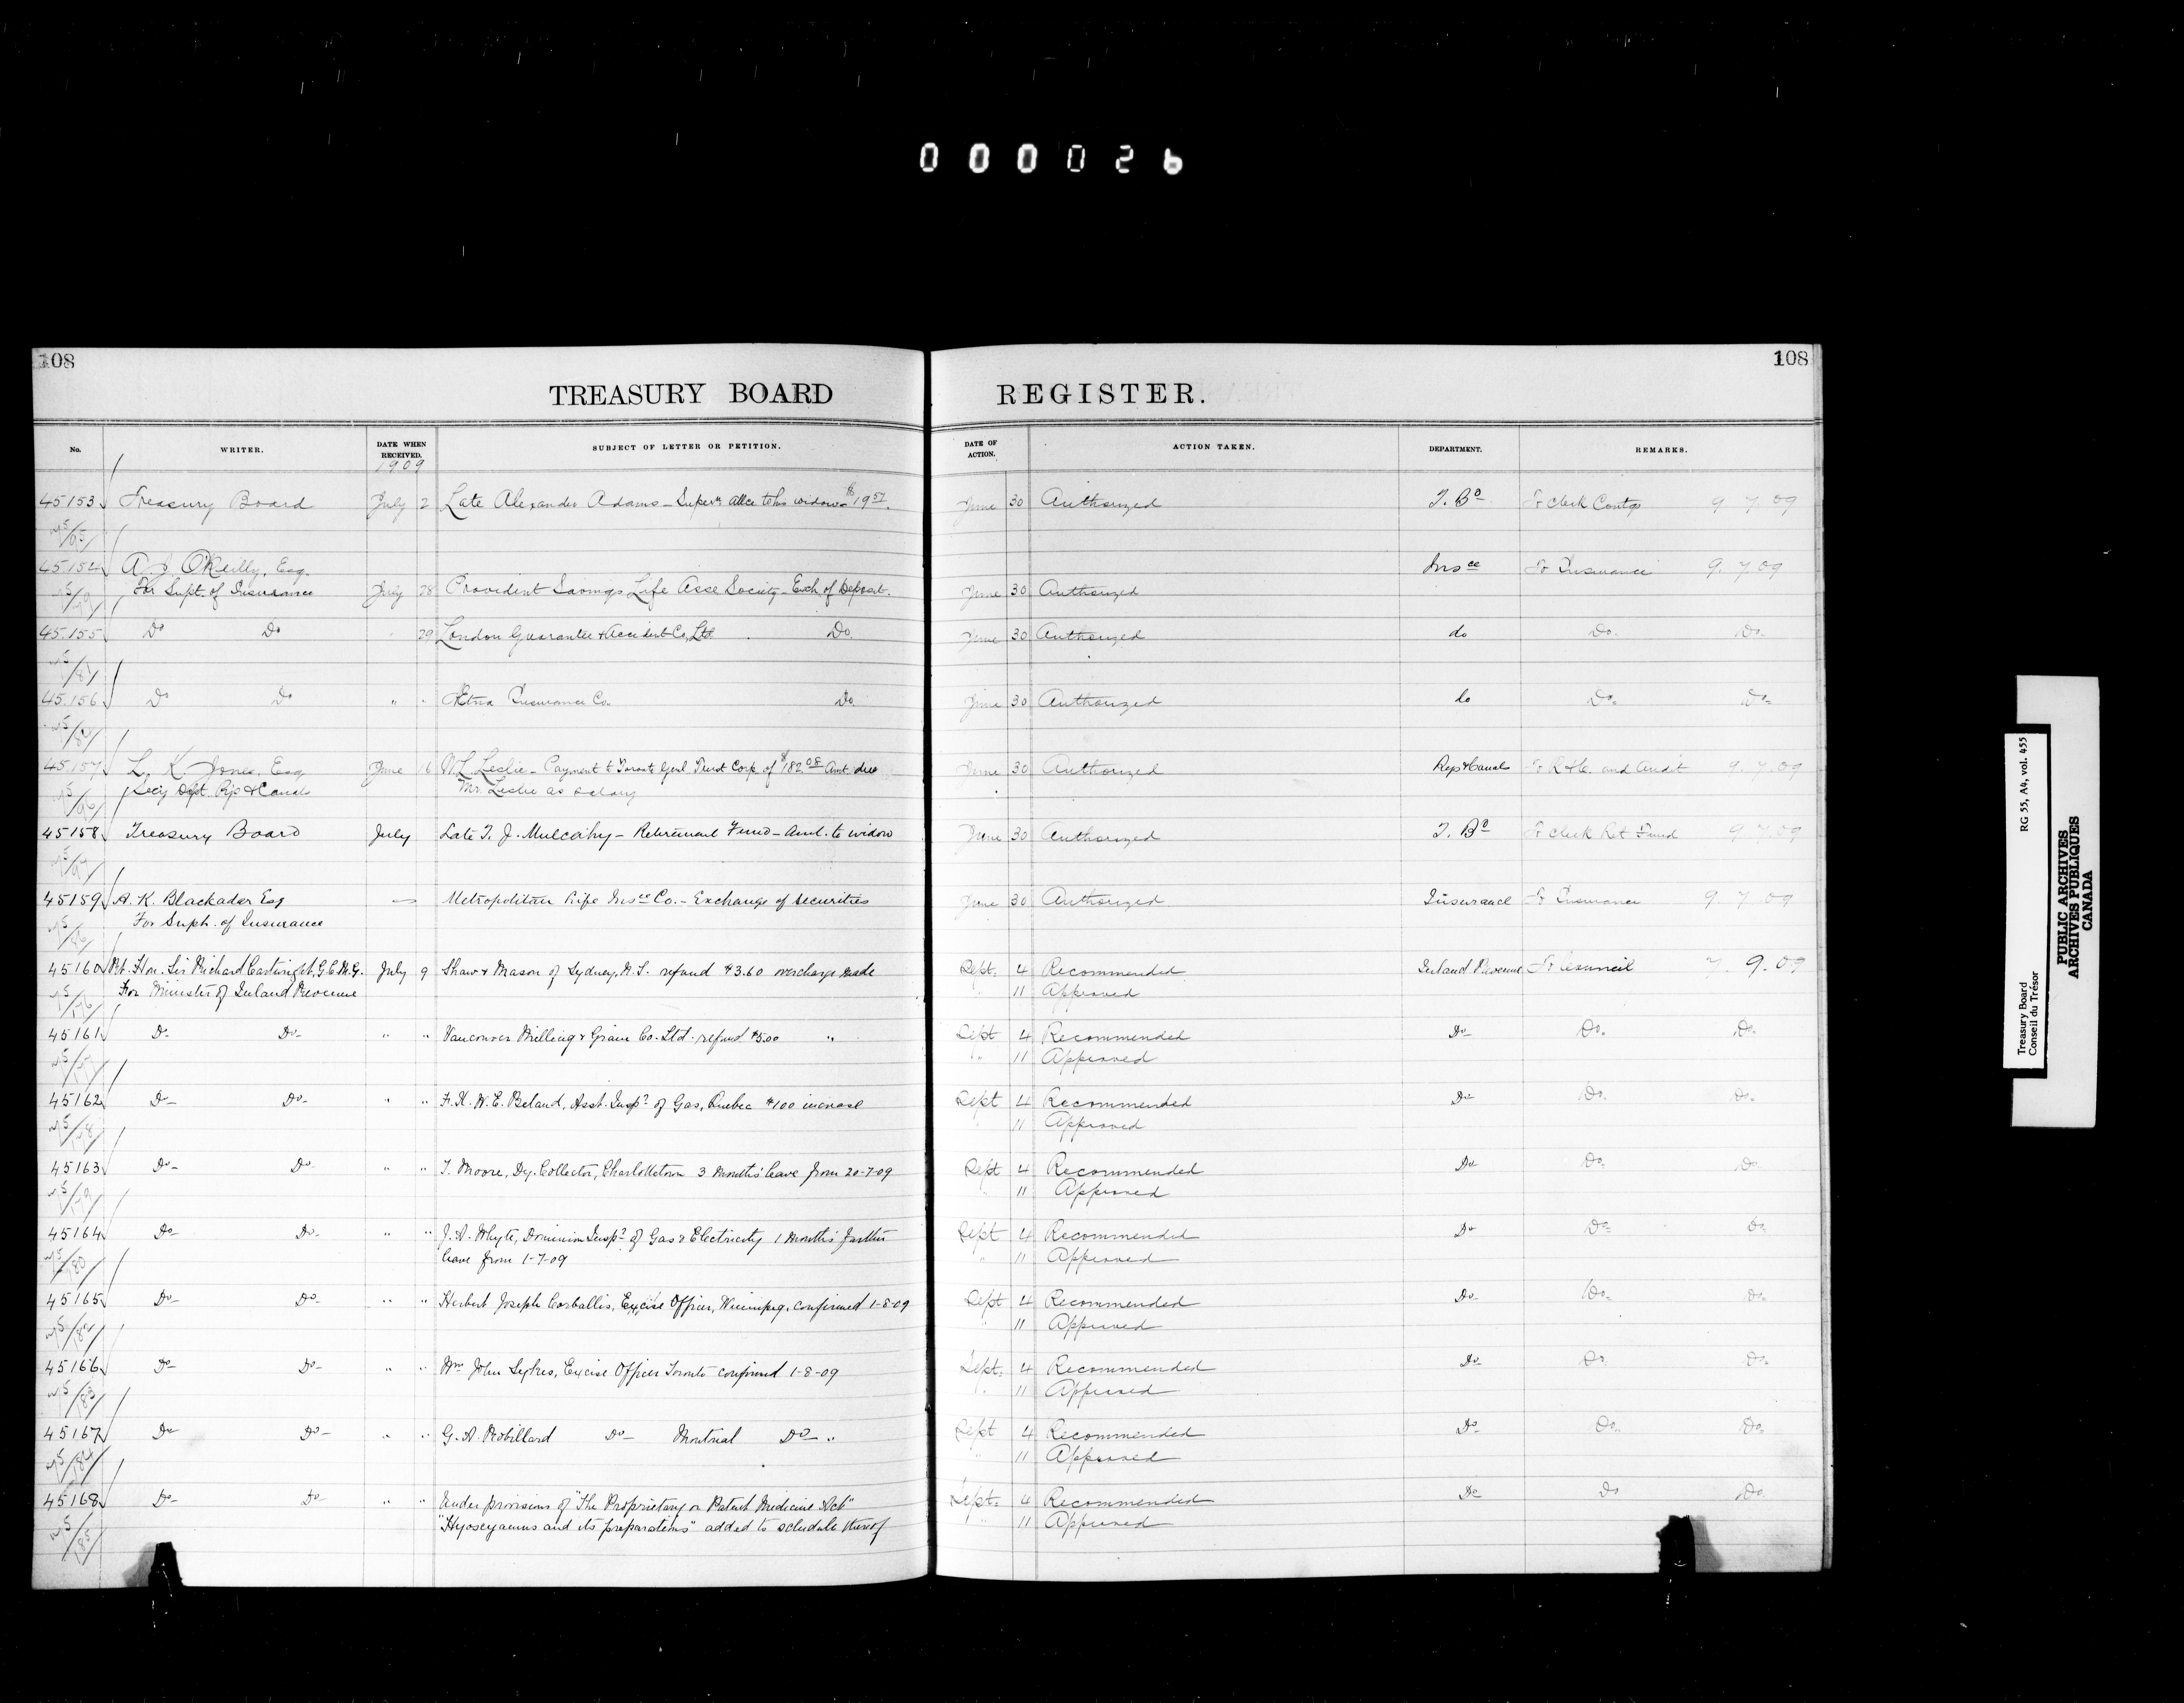 000026
108
108
TREASURY BOARD REGISTER.
No. WRITER. DATE WHEN RECEIVED. SUBJECT OF LETTER OR PETITION. DATE OF ACTION. ACTION TAKEN. DEPARTMENT. REMARKS.
1909
45153 Treasury Board July 2 Late Alexander Adams - allce to his widow June 30 Authorized T. Bd To Clerk 9 7 09
45154 A. J. O'Reilly, Esq. Insce To Insurance 9. 7 09
For Supt. of Insurance July 28 Provident Savings Life Asse Society - Exch of Deposit. June 30 Authorized
45155 Do Do 29 London Guarantee & Accident Co, Ltd Do. June 30 Authorized do Do. Do.
45156 Do Do " Ætna Insurance Co. Do. June 30 Authorized do Do. Do.
45157 L. K. Jones, Esq June 16 W. L. Leslie - Payment to Toronto Genl Trust Corp of $182 08 Amt due June 30 Authorized Rys & Canals To R & C. and Audit 9. 7. 09
Secy Dept. Rys & Canals Mr. Leslie as salary
45158 Treasury Board July Late T. J. Mulcahy - Retirement Fund - Amt. to widow June 30 Authorized T. Bd To Clerk Ret Fund 9 7 09
45159 A. K. Blackadar Esq Metropolitan Life Insce Co. - Exchange of securities June 30 Authorized Insurance To Insurance 9. 7 09
For Supt. of Insurance
45160 Rt. Hon. Sir Richard Cartwright, G.C.M.G. July 9 Shaw & Mason of Sydney, N.S. refund $3.60 overcharge made Sept. 4 Recommended Inland Revenue To Council 7. 9. 09
For Minister of Inland Revenue " 11 Approved
45161 Do Do " " Vancouver Milling & Grain Co. Ltd. refund $5.00 " Sept 4 Recommended Do Do. Do.
" 11 Approved
45162 Do Do " " F. X. W. E. Beland, Asst. Inspr of Gas, Quebec $100 increase Sept 4 Recommended Do Do. Do.
" 11 Approved
45163 Do Do " " T. Moore, Dy. Collector, Charlottetown 3 months' leave from 20-7-09 Sept 4 Recommended Do Do. Do.
" 11 Approved
45164 Do Do " " J. A. Whyte, Dominion Inspr of Gas & Electricity 1 month's further Sept 4 Recommended Do Do Do.
leave from 1-7-09 " 11 Approved
45165 Do Do " " Herbert Joseph Corballis, Excise Officer, Winnipeg, confirmed 1-8-09 Sept 4 Recommended Do Do. Do.
" 11 Approved
45166 Do Do " " Wm John Sykes, Excise Officer Toronto confirmed 1-8-09 Sept. 4 Recommended Do Do. Do.
" 11 Approved
45167 Do Do " " G. A. Robillard Do Montreal Do " Sept 4 Recommended Do Do. Do.
" 11 Approved
45168 Do Do " " Under provisions of "The Proprietary or Patent Medicine Act" Sept. 4 Recommended Do Do Do.
"Hyoscyamus and its preparations" added to schedule thereof " 11 Approved
Treasury Board RG 55, A4, vol. 455
Conseil du Trésor
PUBLIC ARCHIVES
ARCHIVES PUBLIQUES
CANADA